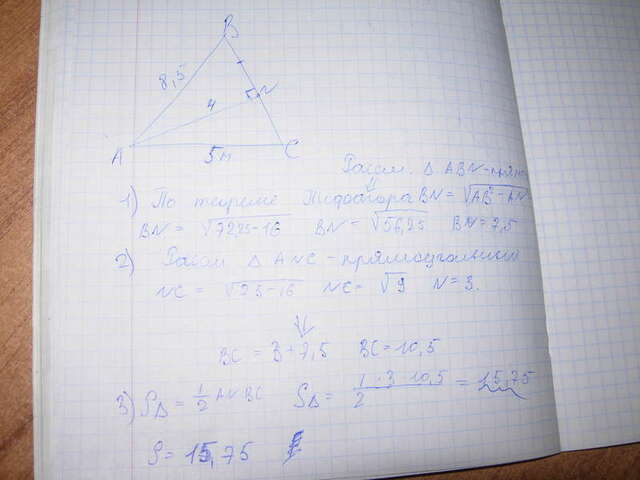 B
8,5
4
N
A
5м
C
Рассм. Δ ABN-прям
1) По теореме Пифагора BN = √AB² - AN
BN = √72,25-16 BN = √56,25 BN = 7,5
2) Рассм Δ ANC - прямоугольный
NC = √25-16 NC = √9 N = 3.
BC = 3+7,5 BC = 10,5
3) SΔ = 1/2 AN·BC SΔ = 1·3·10,5/2 = 15,75
S = 15,75